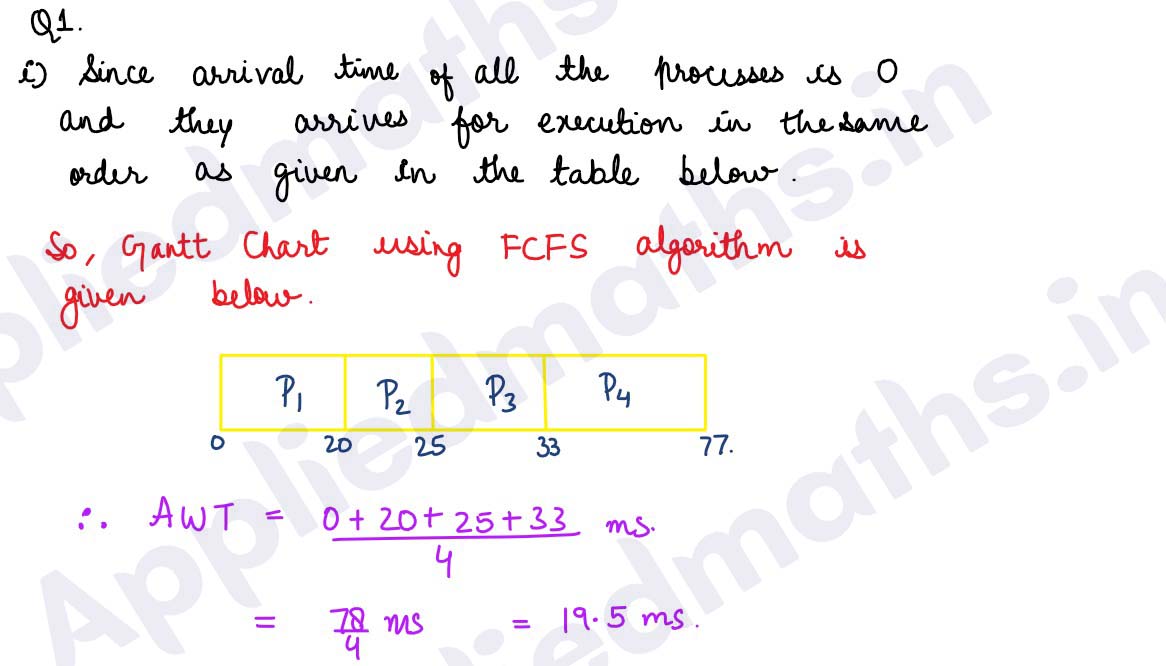 Q1.
i) Since arrival time of all the processes is 0
and they arrives for execution in the same
order as given in the table below.
So, Gantt Chart using FCFS algorithm is
given below.
P1 P2 P3 P4
0 20 25 33 77.
∴ AWT = 0 + 20 + 25 + 33 / 4 ms.
= 78/4 ms = 19.5 ms.
Appliedmaths.in
Appliedmaths.in
Appliedmaths.in